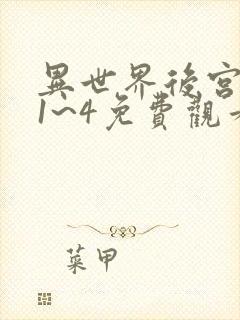 異世界後宮
1~4免費觀
菜甲